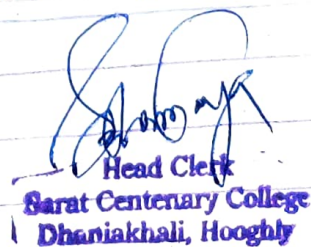 Head Clerk
Sarat Centenary College
Dhaniakhali, Hooghly